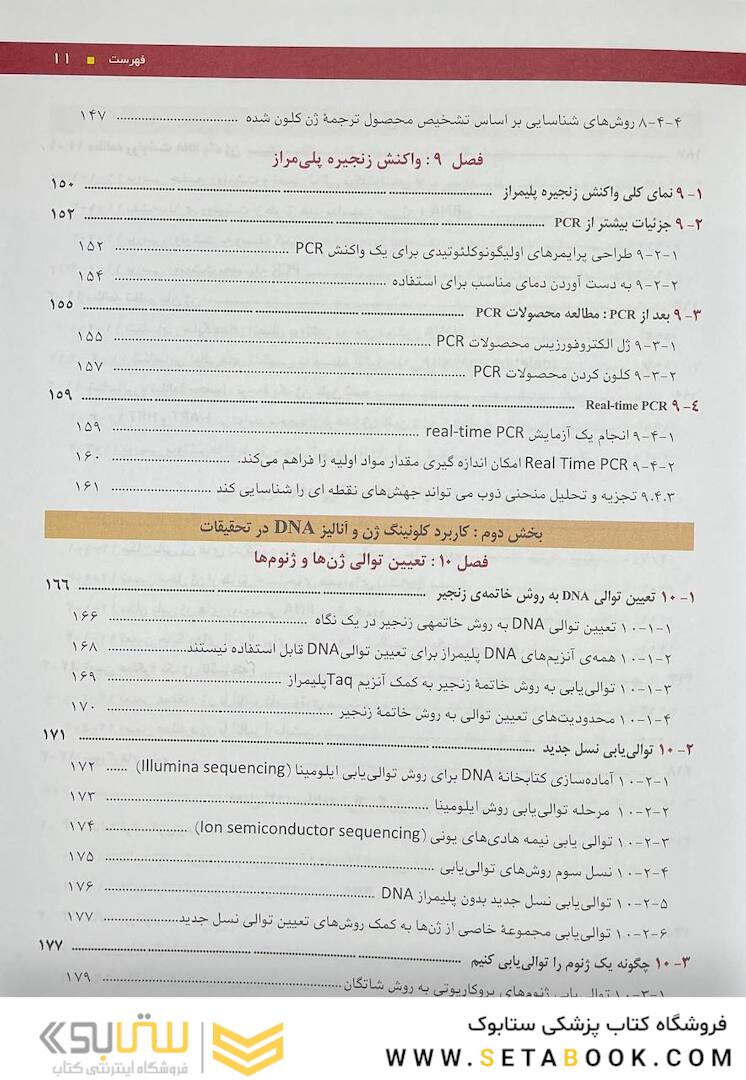 فهرست ۱۱
۸-۴-۴ روش‌های شناسایی بر اساس تشخیص محصول ترجمهٔ ژن کلون شده ۱۴۷
فصل ۹ : واکنش زنجیره پلی‌مراز
۹-۱ نمای کلی واکنش زنجیره پلیمراز ۱۵۰
۹-۲ جزئیات بیشتر از PCR ۱۵۲
۹-۲-۱ طراحی پرایمرهای اولیگونوکلئوتیدی برای یک واکنش PCR ۱۵۲
۹-۲-۲ به دست آوردن دمای مناسب برای استفاده ۱۵۴
۹-۳ بعد از PCR : مطالعه محصولات PCR ۱۵۵
۹-۳-۱ ژل الکتروفورزیس محصولات PCR ۱۵۵
۹-۳-۲ کلون کردن محصولات PCR ۱۵۷
۹-۴ Real-time PCR ۱۵۹
۹-۴-۱ انجام یک آزمایش real-time PCR ۱۵۹
۹-۴-۲ Real Time PCR امکان اندازه گیری مقدار مواد اولیه را فراهم می‌کند. ۱۶۰
۹.۴.۳ تجزیه و تحلیل منحنی ذوب می تواند جهش‌های نقطه ای را شناسایی کند ۱۶۱
بخش دوم : کاربرد کلونینگ ژن و آنالیز DNA در تحقیقات
فصل ۱۰ : تعیین توالی ژن‌ها و ژنوم‌ها
۱۰-۱ تعیین توالی DNA به روش خاتمه‌ی زنجیر ۱۶۶
۱۰-۱-۱ تعیین توالی DNA به روش خاتمهی زنجیر در یک نگاه ۱۶۶
۱۰-۱-۲ همه‌ی آنزیم‌های DNA پلیمراز برای تعیین توالیDNA قابل استفاده نیستند ۱۶۸
۱۰-۱-۳ توالی‌یابی به روش خاتمهٔ زنجیر به کمک آنزیم Taqپلیمراز ۱۶۹
۱۰-۱-۴ محدودیت‌های تعیین توالی به روش خاتمهٔ زنجیر ۱۷۰
۱۰-۲ توالی‌یابی نسل جدید ۱۷۱
۱۰-۲-۱ آماده‌سازی کتابخانهٔ DNA برای روش توالی‌یابی ایلومینا (Illumina sequencing) ۱۷۲
۱۰-۲-۲ مرحله توالی‌یابی روش ایلومینا ۱۷۳
۱۰-۲-۳ توالی یابی نیمه هادی‌های یونی (Ion semiconductor sequencing) ۱۷۴
۱۰-۲-۴ نسل سوم روش‌های توالی‌یابی ۱۷۵
۱۰-۲-۵ توالی‌یابی نسل جدید بدون پلیمراز DNA ۱۷۶
۱۰-۲-۶ توالی‌یابی مجموعهٔ خاصی از ژن‌ها به کمک روش‌های تعیین توالی نسل جدید ۱۷۷
۱۰-۳ چگونه یک ژنوم را توالی‌یابی کنیم ۱۷۷
۱۰-۳-۱ توالی‌یابی ژنوم‌های پروکاریوتی به روش شاتگان ۱۷۹
فروشگاه کتاب پزشکی ستابوک
WWW.SETABOOK.COM
ستابوک
فروشگاه اینترنتی کتاب